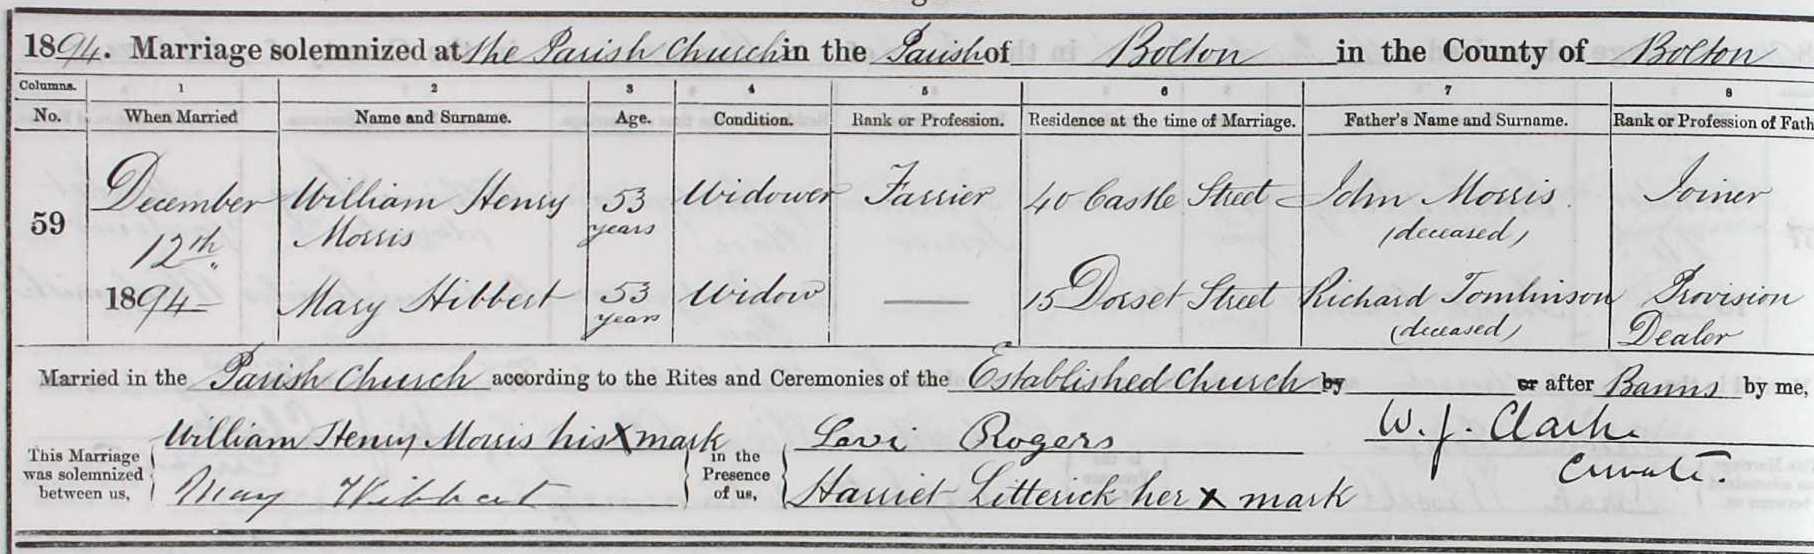 1894. Marriage solemnized at the Parish Church in the Parish of Bolton in the County of Bolton
Columns. 1 2 3 4 5 6 7 8
No. When Married Name and Surname. Age. Condition. Rank or Profession. Residence at the time of Marriage. Father's Name and Surname. Rank or Profession of Fath
59 December 12th 1894
William Henry Morris 53 years Widower Farrier 40 Castle Street John Morris (deceased) Joiner
Mary Hibbert 53 years Widow — 15 Dorset Street Richard Tomlinson (deceased) Provision Dealer
Married in the Parish Church according to the Rites and Ceremonies of the Established Church by or after Banns by me,
W. J. Clarke
Curate.
This Marriage was solemnized between us,
William Henry Morris his X mark
Mary Hibbert
in the Presence of us,
Levi Rogers
Harriet Litterick her X mark